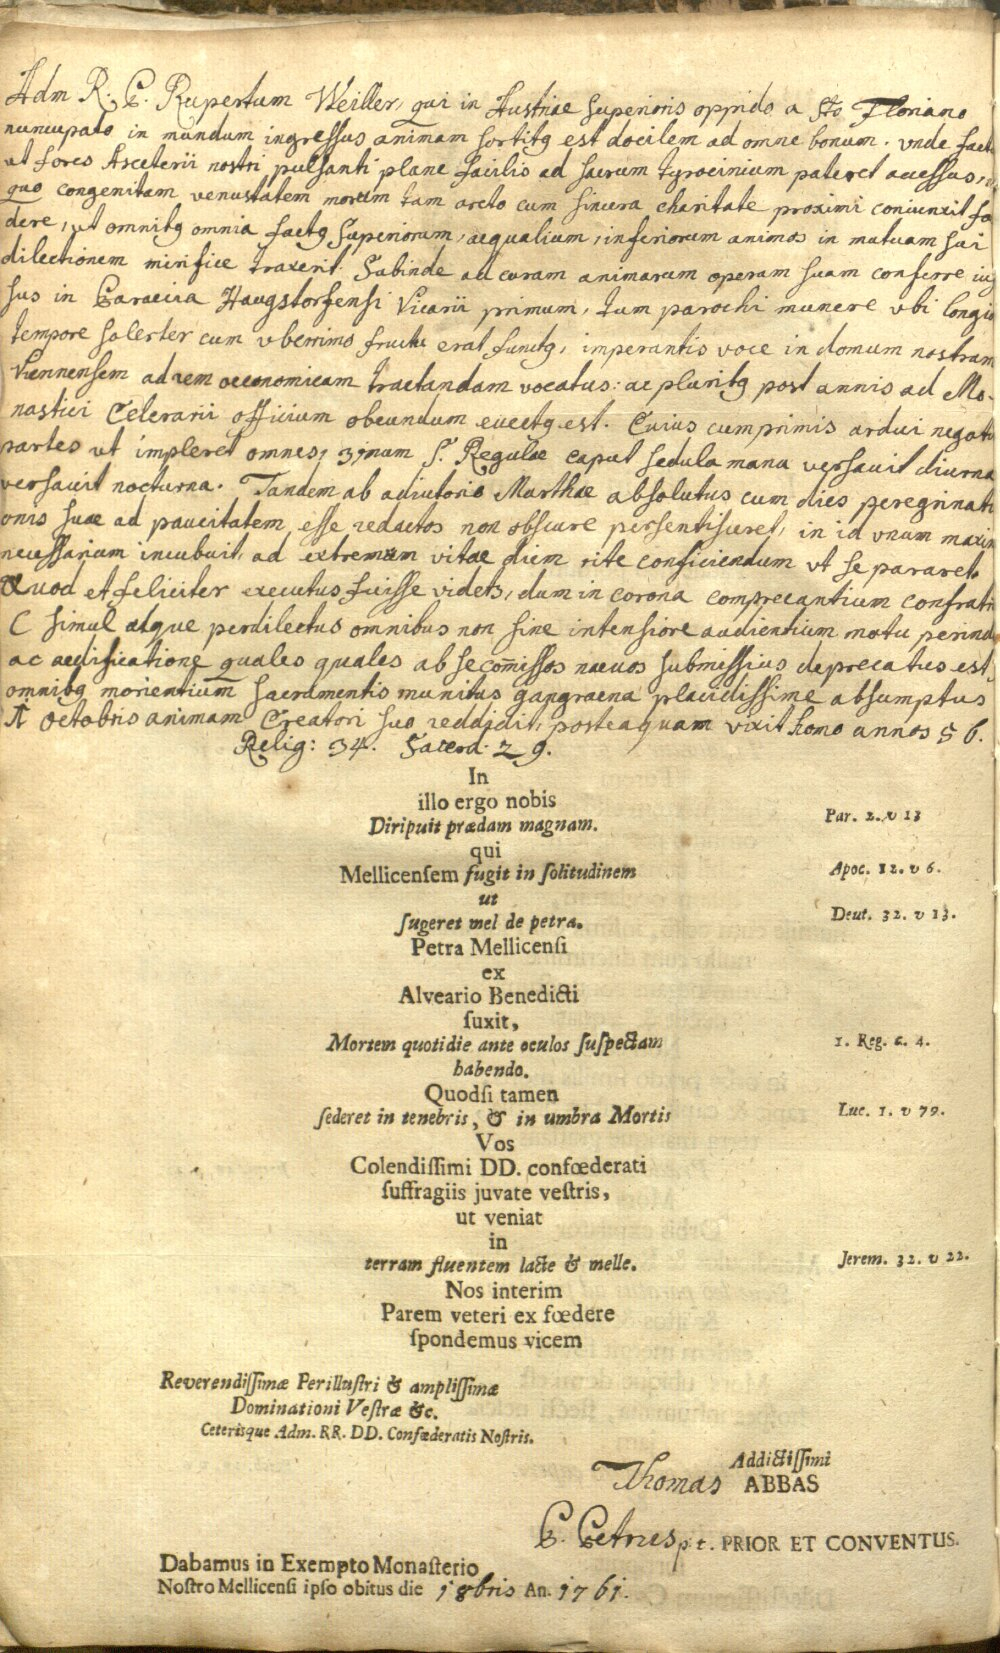 Adm R. P. Rupertum Weiller, qui in Austriae superioris oppido a Sto Floriano
nuncupato in mundum ingressus animam sortitq est docilem ad omne bonum. vnde fact
ut fores Asceterii nostri pulsanti plane facilis ad sacrum tyrocinium pateret accessus,
quo congenitam venustatem morum tam arcto cum sincera charitate proximi coniunxit fœ
dere, ut omnibq omnia factq superiorum, aequalium, inferiorum animos in mutuam sui
dilectionem mirifice traxerit. Subinde ad curam animarum operam suam conferre ius
sus in Paraecia Haugstorfensi Vicarii primum, tum parochi munere vbi longio
tempore solerter cum vberrimo fructu erat functq, imperantis voce in domum nostram
Viennensem ad rem oeconomicam tractandam vocatus: ac pluribq post annis ad Mo-
nastici Celerarii officium obeundum evectq est. Cuius cum primis ardui negotii
partes ut impleret omnes, 31mum S. Regulae caput sedula manu versauit diurna
versauit nocturna. Tandem ab adiutorio Marthae absolutus cum dies peregrinati
onis suae ad paucitatem esse redactos non obscure persentisceret, in id vnum maxim
necessarium incubuit, ad extremum vitae diem rite conficiendum vt se pararet.
Quod et feliciter executus fuisse videtr, dum in corona comprecantium confratr
C simul atque perdilectus omnibus non sine intensiore audientium motu perinde
ac aedificatione quales quales ab se comissos naevos submissius deprecatus est,
omnibq morientium sacramentis munitus gangraena placidissime absumptus
1 octobris animam Creatori suo reddidit, posteaquam vixit homo annos 56.
Relig: 34. Sacerd. 29.
In
illo ergo nobis
Diripuit prædam magnam. Par. 2. v 13
qui
Mellicensem fugit in solitudinem Apoc. 12. v 6.
ut
sugeret mel de petra. Deut. 32. v 13.
Petra Mellicensi
ex
Alveario Benedicti
suxit,
Mortem quotidie ante oculos suspectam 1. Reg. c. 4.
habendo.
Quodsi tamen
sederet in tenebris, & in umbra Mortis Luc. 1. v 79.
Vos
Colendissimi DD. confœderati
suffragiis juvate vestris,
ut veniat
in
terram fluentem lacte & melle. Jerem. 32. v 22.
Nos interim
Parem veteri ex fœdere
spondemus vicem
Reverendissimæ Perillustri & amplissimæ
Dominationi Vestræ &c.
Ceterisque Adm. RR. DD. Confœderatis Nostris.
Addictissimi
Thomas ABBAS
P. Petrus p.t. PRIOR ET CONVENTUS.
Dabamus in Exempto Monasterio
Nostro Mellicensi ipso obitus die 1 8bris An. 1761.